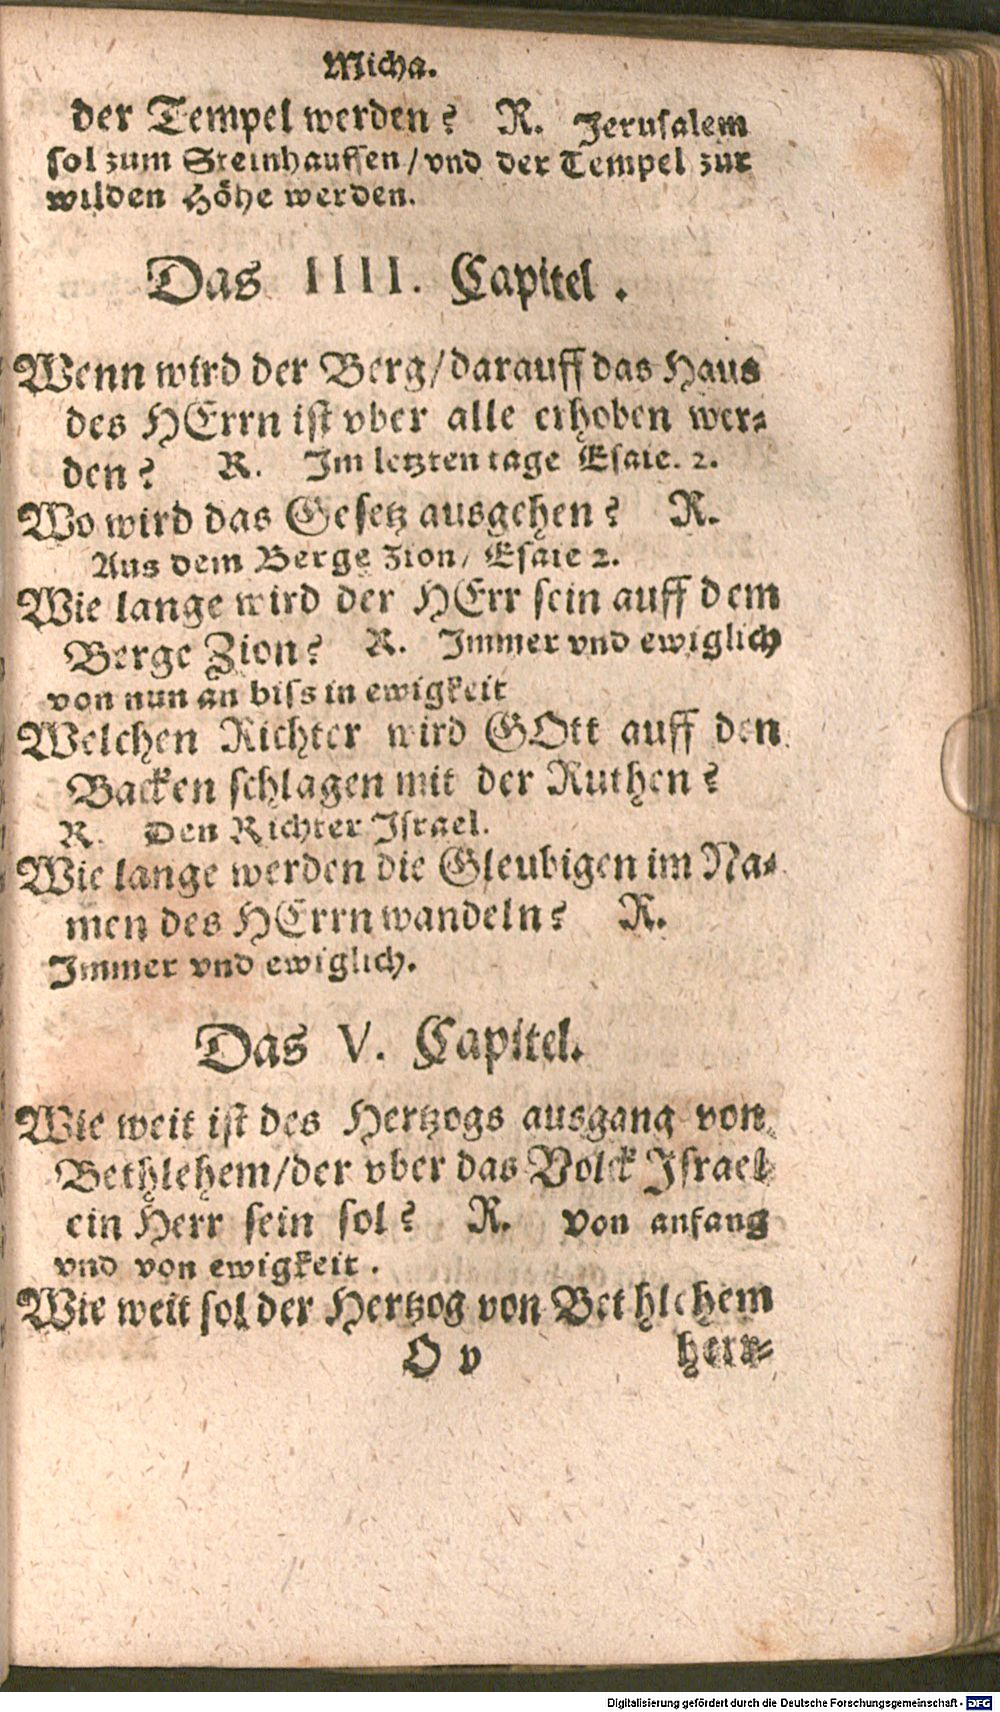 Micha.
der Tempel werden? R. Jerusalem
sol zum Steinhauffen/vnd der Tempel zur
wilden Höhe werden.
Das IIII. Capitel.
Wenn wird der Berg/darauff das Haus
des HErrn ist vber alle erhoben wer-
den? R. Im letzten tage Esaie. 2.
Wo wird das Gesetz ausgehen? R.
Aus dem Berge Zion/ Esaie 2.
Wie lange wird der HErr sein auff dem
Berge Zion? R. Immer vnd ewiglich
von nun an biss in ewigkeit
Welchen Richter wird GOtt auff den
Backen schlagen mit der Ruthen?
R. Den Richter Israel.
Wie lange werden die Gleubigen im Na-
men des HErrn wandeln? R.
Immer vnd ewiglich.
Das V. Capitel.
Wie weit ist des Hertzogs ausgang von
Bethlehem/der vber das Volck Israel
ein Herr sein sol? R. Von anfang
vnd von ewigkeit.
Wie weit sol der Hertzog von Bethlehem
O v herr-
Digitalisierung gefördert durch die Deutsche Forschungsgemeinschaft - DFG